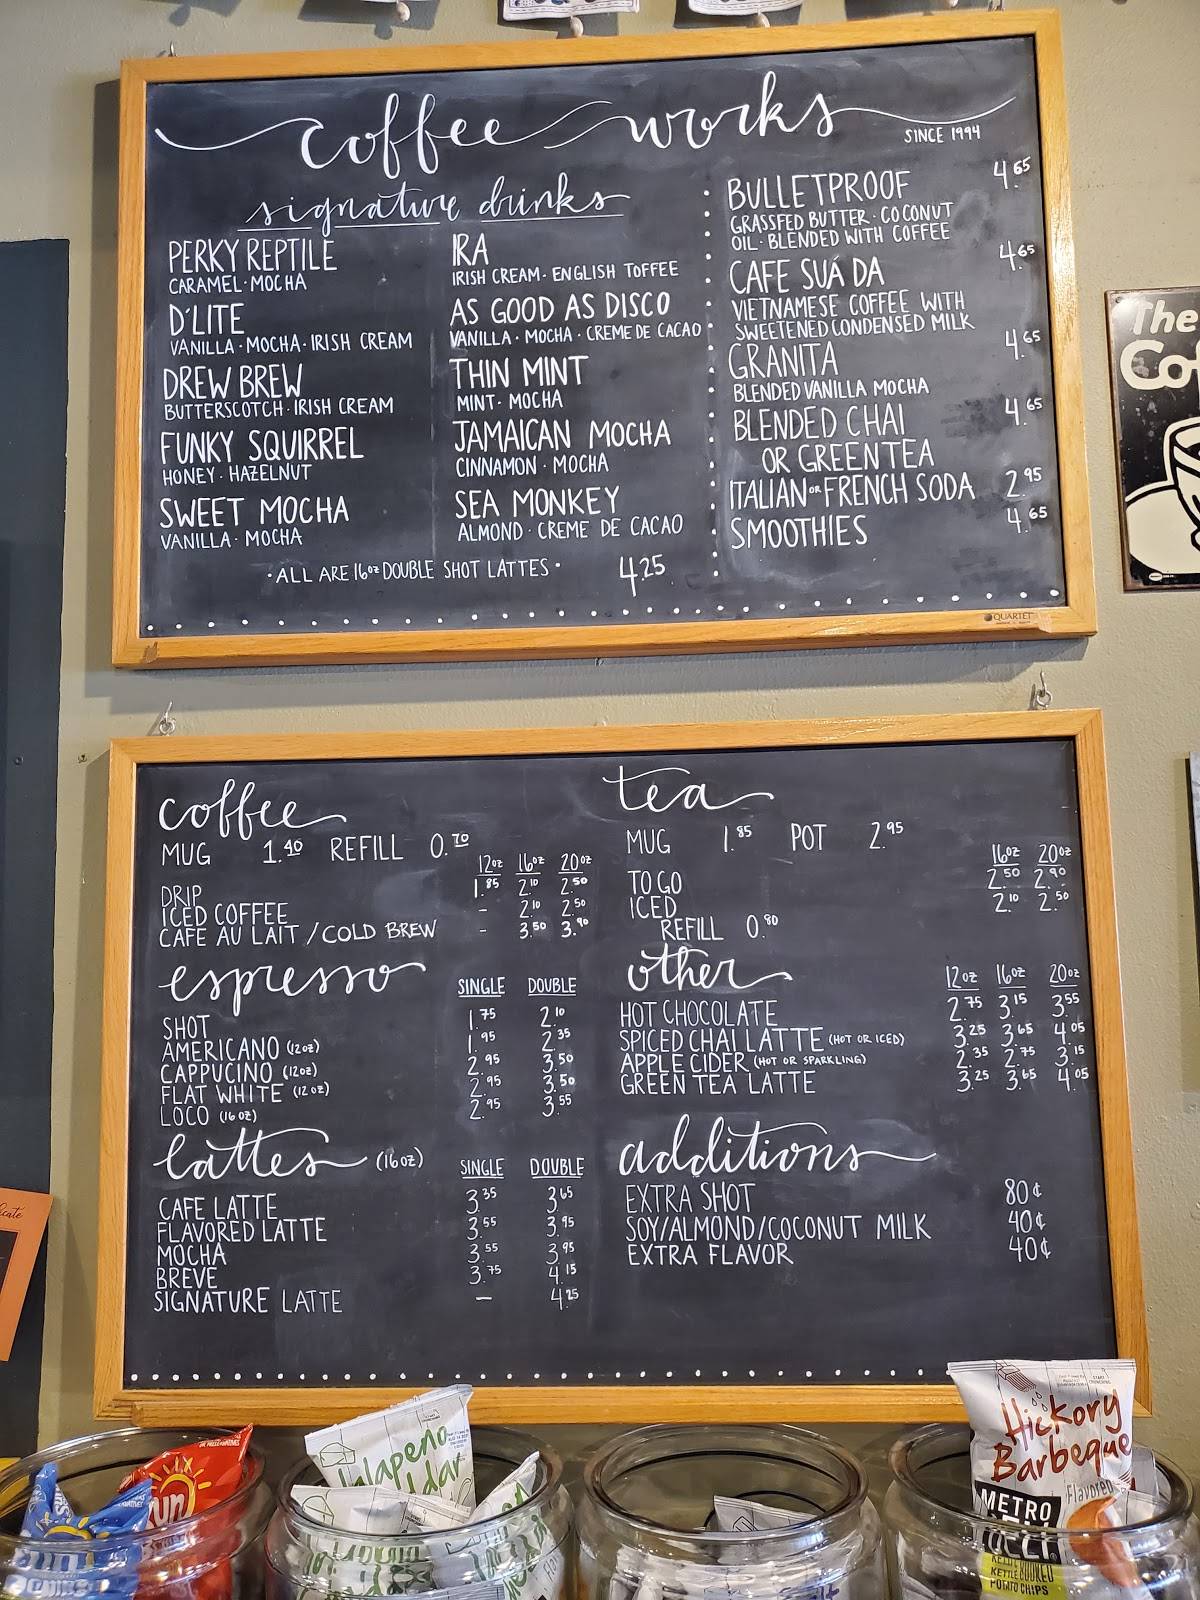 coffee works
SINCE 1994
signature drinks
PERKY REPTILE
CARAMEL · MOCHA
D'LITE
VANILLA · MOCHA · IRISH CREAM
DREW BREW
BUTTERSCOTCH · IRISH CREAM
FUNKY SQUIRREL
HONEY · HAZELNUT
SWEET MOCHA
VANILLA · MOCHA
IRA
IRISH CREAM · ENGLISH TOFFEE
AS GOOD AS DISCO
VANILLA · MOCHA · CREME DE CACAO
THIN MINT
MINT · MOCHA
JAMAICAN MOCHA
CINNAMON · MOCHA
SEA MONKEY
ALMOND · CREME DE CACAO
· ALL ARE 16oz DOUBLE SHOT LATTES · 4.25
BULLETPROOF 4.65
GRASSFED BUTTER · COCONUT
OIL · BLENDED WITH COFFEE
CAFE SUÁ DA 4.65
VIETNAMESE COFFEE WITH
SWEETENED CONDENSED MILK
GRANITA 4.65
BLENDED VANILLA MOCHA
BLENDED CHAI 4.65
OR GREEN TEA
ITALIAN OR FRENCH SODA 2.95
SMOOTHIES 4.65
QUARTET
The
Co
coffee
MUG 1.40 REFILL 0.70
12oz 16oz 20oz
DRIP 1.85 2.10 2.50
ICED COFFEE - 2.10 2.50
CAFE AU LAIT / COLD BREW - 3.50 3.90
espresso SINGLE DOUBLE
SHOT 1.75 2.10
AMERICANO (12oz) 1.95 2.35
CAPPUCINO (12oz) 2.95 3.50
FLAT WHITE (12oz) 2.95 3.50
LOCO (16oz) 2.95 3.55
lattes (16oz) SINGLE DOUBLE
CAFE LATTE 3.35 3.65
FLAVORED LATTE 3.55 3.95
MOCHA 3.55 3.95
BREVE 3.75 4.15
SIGNATURE LATTE - 4.25
tea
MUG 1.85 POT 2.95
16oz 20oz
TO GO 2.50 2.90
ICED 2.10 2.50
REFILL 0.80
other 12oz 16oz 20oz
HOT CHOCOLATE 2.75 3.15 3.55
SPICED CHAI LATTE (HOT OR ICED) 3.25 3.65 4.05
APPLE CIDER (HOT OR SPARKLING) 2.35 2.75 3.15
GREEN TEA LATTE 3.25 3.65 4.05
additions
EXTRA SHOT 80¢
SOY/ALMOND/COCONUT MILK 40¢
EXTRA FLAVOR 40¢
Sun
CHIPS
Jalapeno
Hickory
Barbeque
Flavored
METRO
DELI
KETTLE COOKED
POTATO CHIPS